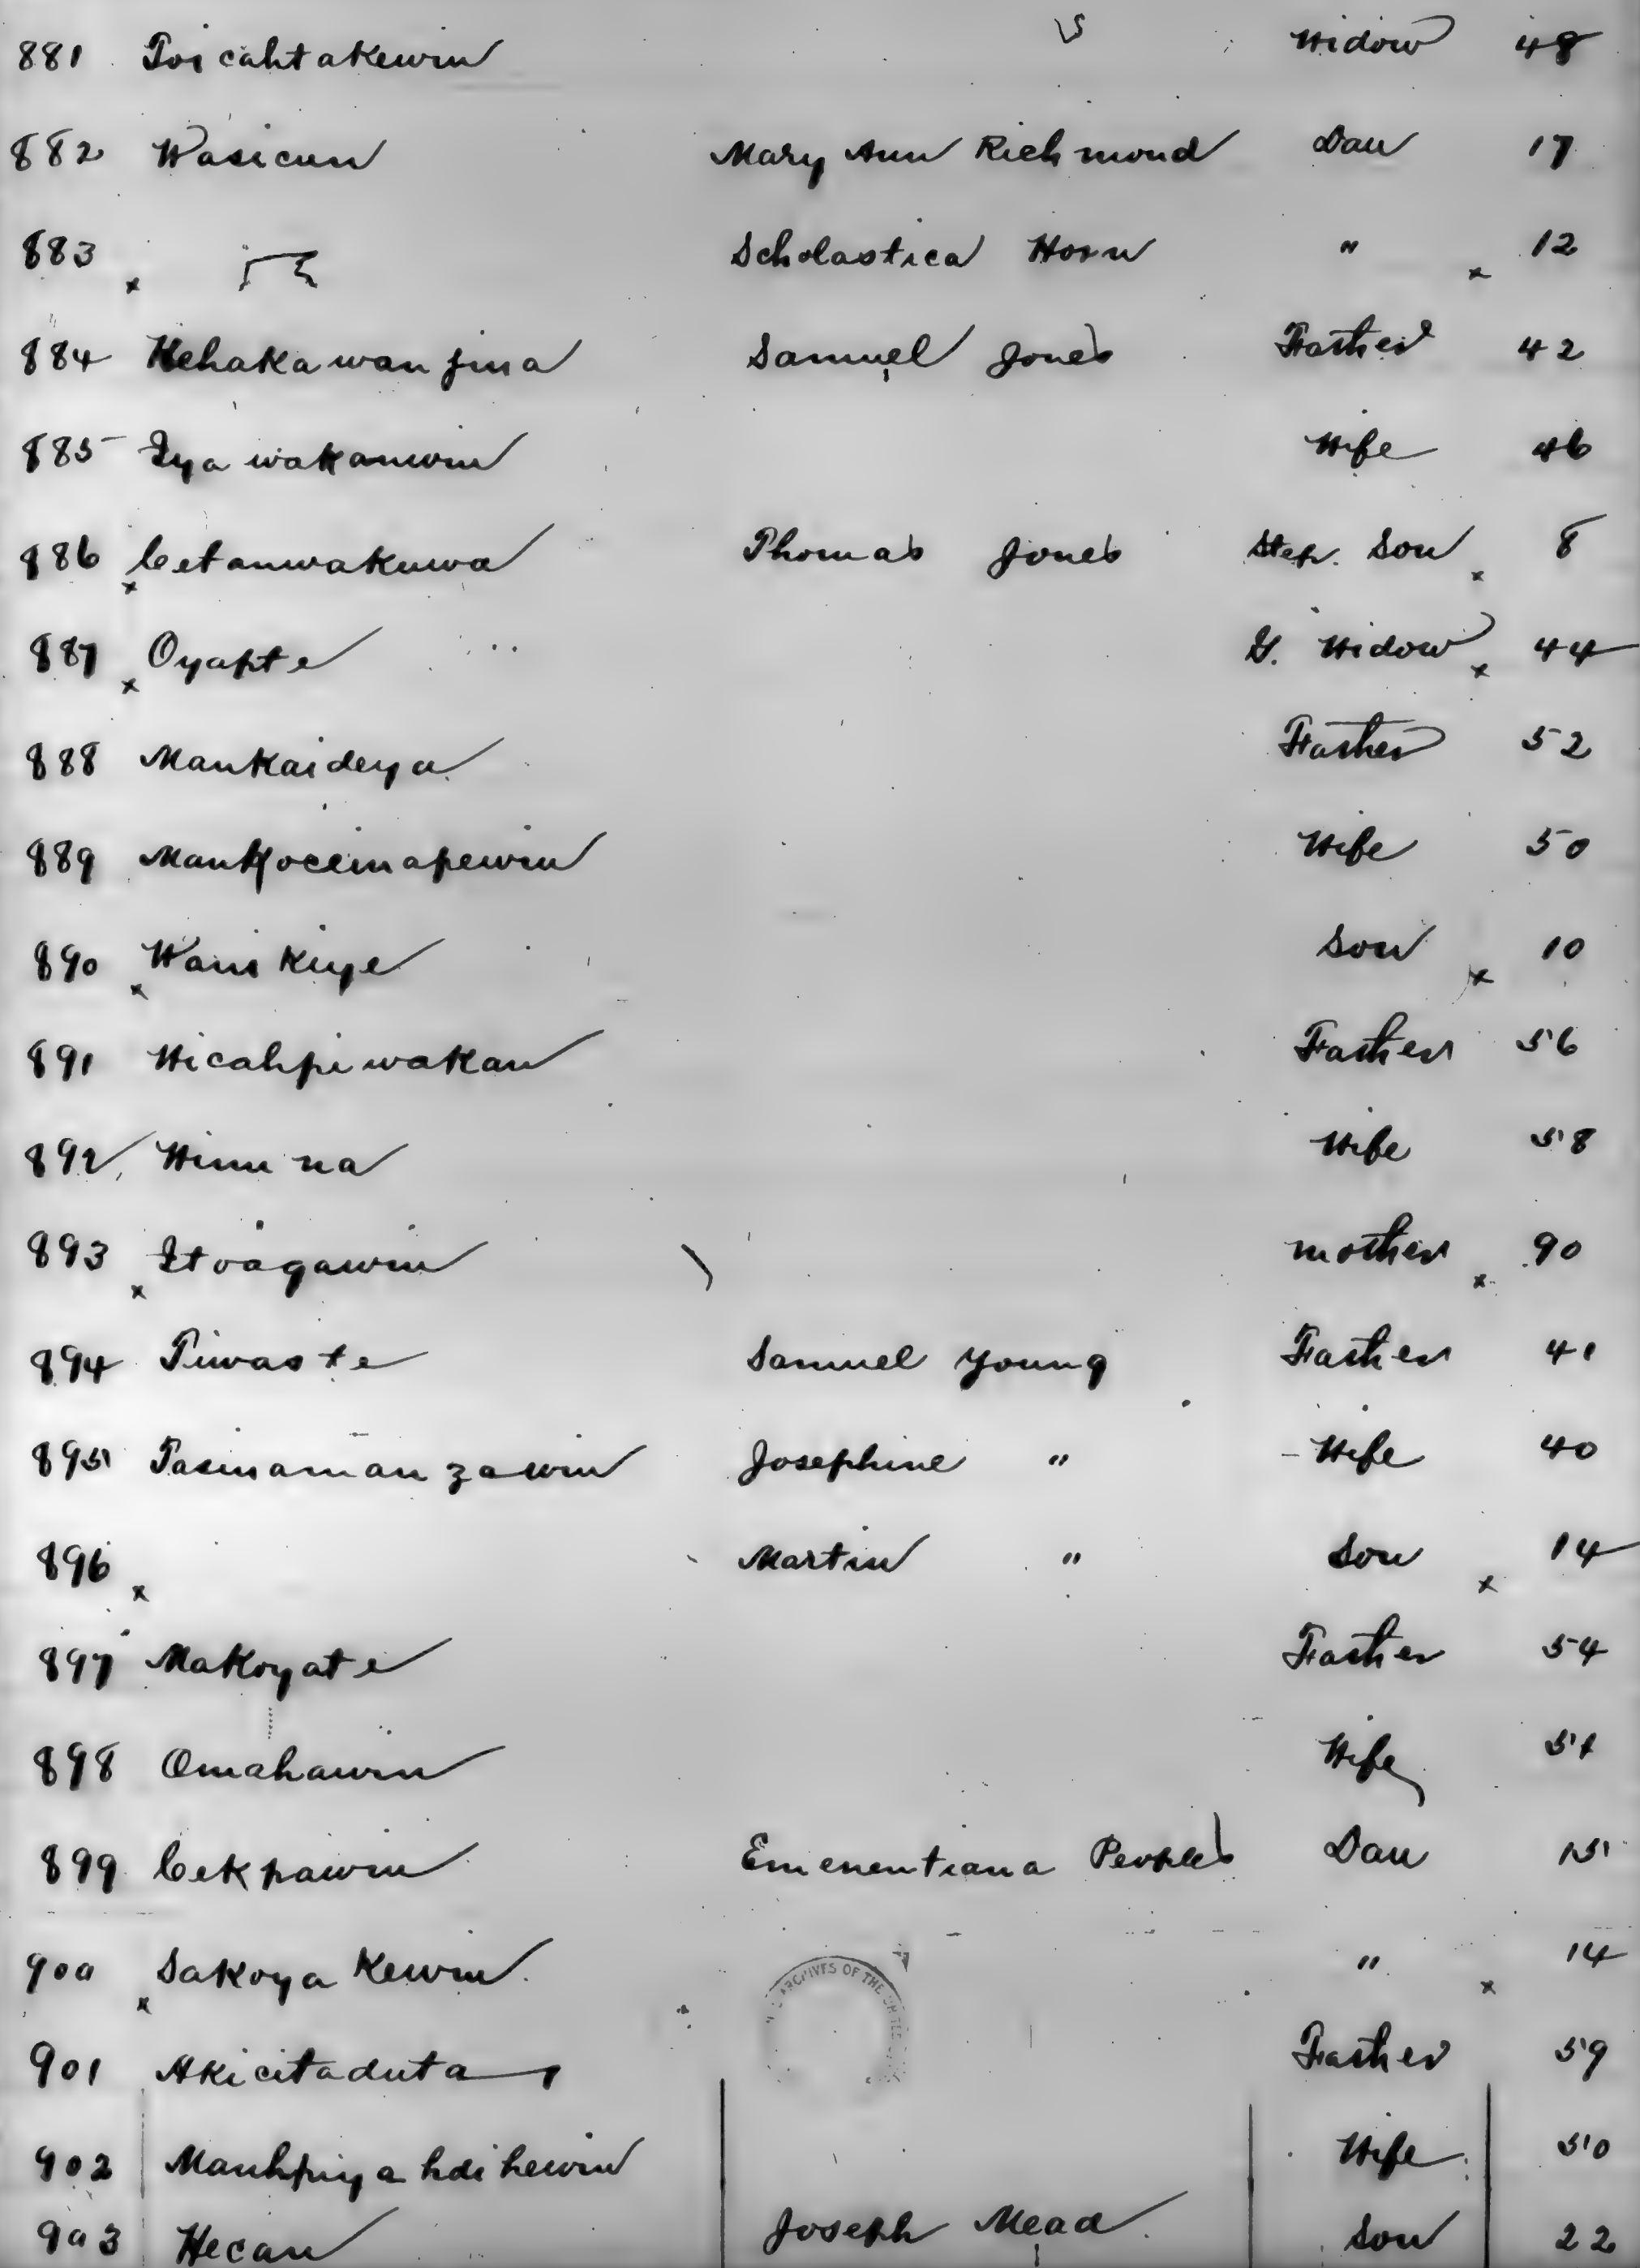 881 Toicahtakewin Widow 48
882 Wasicun Mary Ann Richmond Dau 17
883 x Scholastica Horn " x 12
884 Hehaka wanjina Samuel Jones Father 42
885 Iyawakanwin Wife 46
886 x Cetanwakuwa Thomas Jones Step. Son x 8
887 x Oyapte G. Widow x 44
888 Mankaideya Father 52
889 Mankocemapewin Wife 50
890 x Wanikiye Son x 10
891 Wicahpiwakan Father 56
892 Winuna Wife 58
893 x Itoagawin mother x 90
894 Tiwaste Samuel Young Father 41
895 Tasinamanzawin Josephine " Wife 40
896 x Martin " Son x 14
897 Makoyate Father 54
898 Omahawin Wife 51
899 Cekpawin Emenentiana Peoples Dau 15
900 x Sakoya Kewin " x 14
ARCHIVES OF THE
901 Akicitaduta Father 59
902 Manhpiya hdi hewin Wife 50
903 Hecan Joseph Mead Son 22